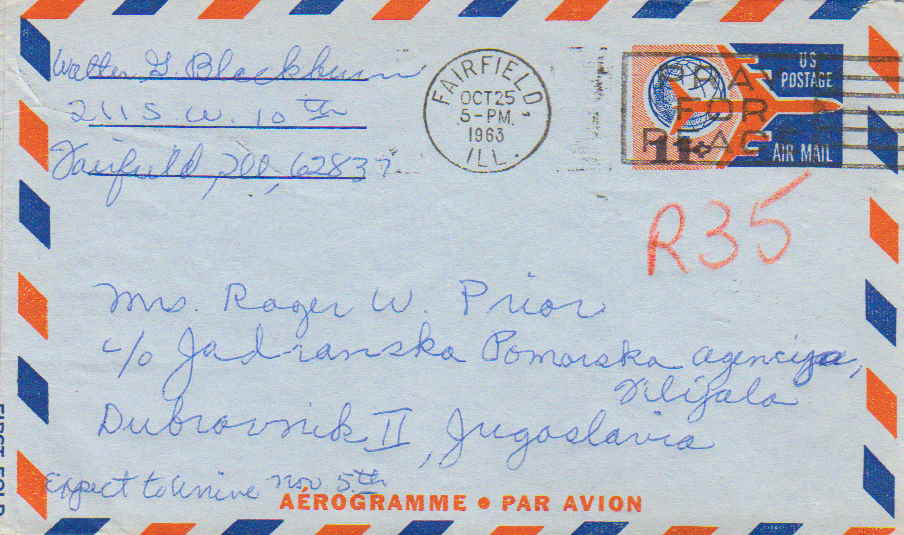 Walter G Blackburn
211 S W. 10th
Fairfield, Ill, 62837
FAIRFIELD,
OCT 25
5-PM.
1963
ILL.
PRAY
FOR
PEACE
US
POSTAGE
11¢
AIR MAIL
R35
Mrs. Roger W. Prior
c/o Jadranska Pomorska agencija,
Filijala
Dubrovnik II, Jugoslavia
Expect to arrive Nov 5th
AÉROGRAMME • PAR AVION
FIRST FOLD